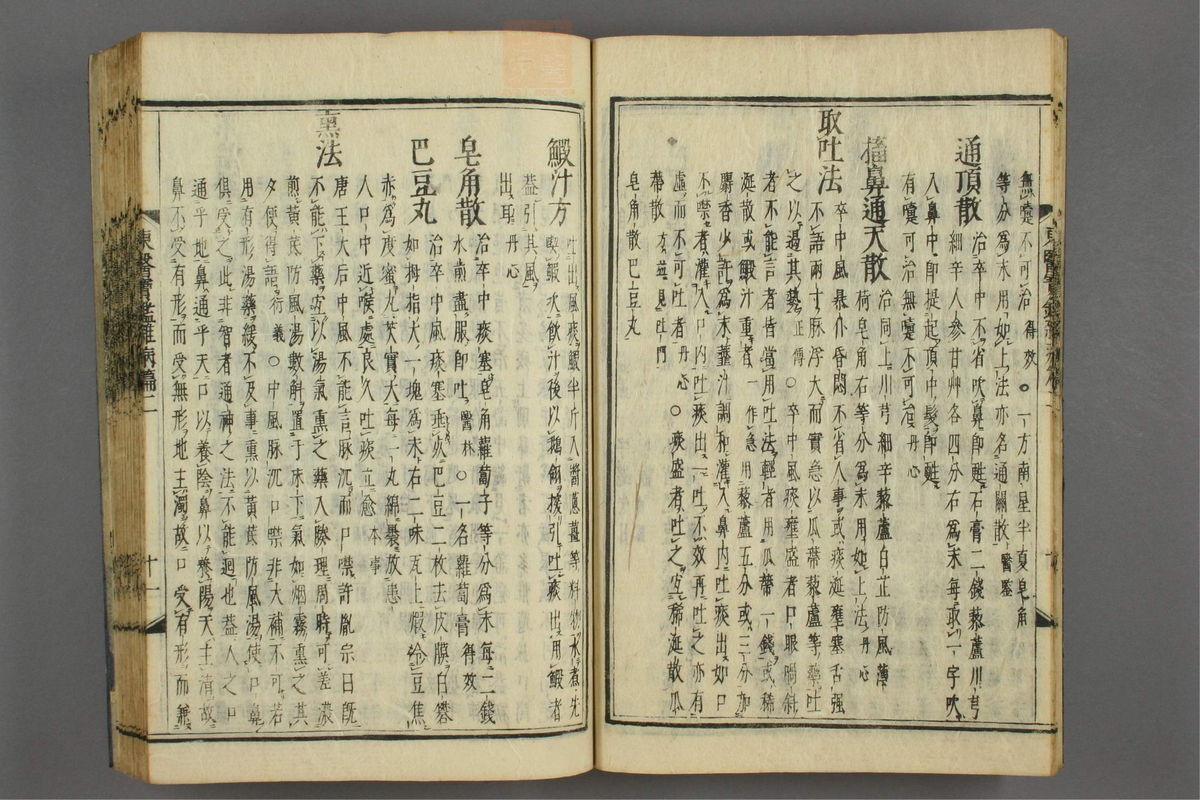 無嚔不可治 得效 ○一方南星半夏皂角
等分爲末用如上法亦名通關散 醫鑑
通頂散 治卒中不省吹鼻卽甦石膏二錢藜蘆川芎
細辛人參甘艸各四分右爲末每取一字吹
入鼻中卽提起頂中髮卽甦
有嚔可治無嚔不可治 丹心
搐鼻通天散 治同上川芎細辛藜蘆白芷防風薄
荷皂角右等分爲末用如上法 丹心
取吐法 卒中風暴仆昏悶不省人事或痰涎壅塞舌强
不語兩寸脉浮大而實急以瓜蔕藜蘆等藥吐
之以遏其勢 正傳 ○卒中風痰壅盛者口眼喎斜
者不能言者皆當用吐法輕者用瓜蔕一錢或稀
涎散或鰕汁重者 一作急 用藜蘆五分或三分加
麝香少許爲末虀汁調和灌入鼻內吐痰出如口
不噤者灌入口內吐痰出一吐不效再吐之亦有
虛而不可吐者 丹心 ○痰盛者吐之宜稀涎散瓜
蔕散 方並見吐門
皂角散巴豆丸
鰕汁方 吐出風痰鰕半斤入醬葱薑等料物水煮先
喫鰕次飮汁後以鵝翎探引吐痰出用鰕者
盖引其風
出耳 丹心
皂角散 治卒中痰塞皂角蘿蔔子等分爲末每二錢
水煎盡服卽吐 醫林 ○一名蘿蔔膏 得效
巴豆丸 治卒中風痰塞垂死巴豆二枚去皮膜白礬
如拇指大一塊爲末右二味瓦上煆令豆焦
赤爲度蜜丸芡實大每一丸綿裹放患
人口中近喉處良久吐痰立愈 本事
熏法 唐王太后中風不能言脉沉而口噤許胤宗曰旣
不能下藥宜以湯氣熏之藥入腠理周時可差濃
煎黃茋防風湯數斛置于床下氣如烟霧熏之其
夕便得語 衍義 ○中風脉沉口噤非大補不可若
用有形湯藥緩不及事熏以黃茋防風湯使口鼻
俱受之此非智者通神之法不能迴也盖人之口
通乎地鼻通乎天口以養陰鼻以養陽天主淸故
鼻不受有形而受無形地主濁故口受有形而兼
東醫寶鑑雜病篇二
十一